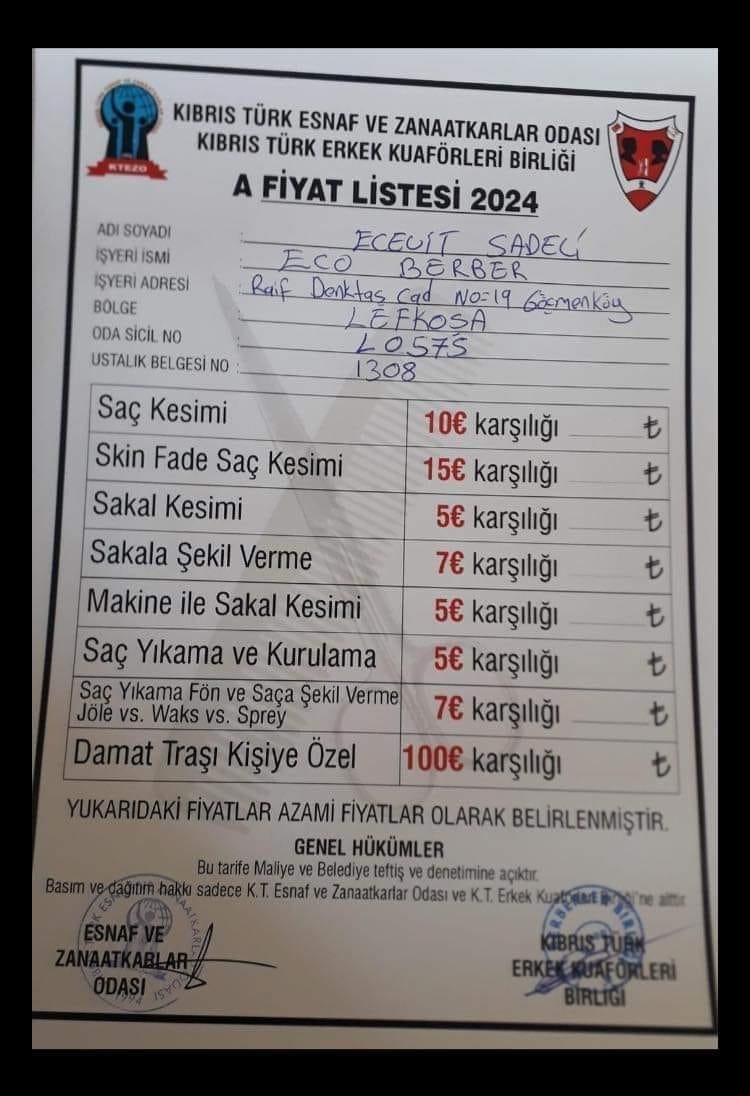 KTEZO
KIBRIS TÜRK ESNAF VE ZANAATKARLAR ODASI
KIBRIS TÜRK ERKEK KUAFÖRLERİ BİRLİĞİ
A FİYAT LİSTESİ 2024
ADI SOYADI : ECEVİT SADECİ
İŞYERİ İSMİ : ECO BERBER
İŞYERİ ADRESİ : Raif Denktaş Cad No=19 Göçmenköy
BÖLGE : LEFKOŞA
ODA SİCİL NO : L0575
USTALIK BELGESİ NO : 1308
Saç Kesimi 10€ karşılığı ₺
Skin Fade Saç Kesimi 15€ karşılığı ₺
Sakal Kesimi 5€ karşılığı ₺
Sakala Şekil Verme 7€ karşılığı ₺
Makine ile Sakal Kesimi 5€ karşılığı ₺
Saç Yıkama ve Kurulama 5€ karşılığı ₺
Saç Yıkama Fön ve Saça Şekil Verme
Jöle vs. Waks vs. Sprey 7€ karşılığı ₺
Damat Traşı Kişiye Özel 100€ karşılığı ₺
YUKARIDAKİ FİYATLAR AZAMİ FİYATLAR OLARAK BELİRLENMİŞTİR.
GENEL HÜKÜMLER
Bu tarife Maliye ve Belediye teftiş ve denetimine açıktır.
Basım ve dağıtım hakkı sadece K.T. Esnaf ve Zanaatkarlar Odası ve K.T. Erkek Kuaförleri Birliği'ne aittir.
ESNAF VE
ZANAATKARLAR
ODASI
KIBRIS TÜRK
ERKEK KUAFÖRLERİ
BİRLİĞİ